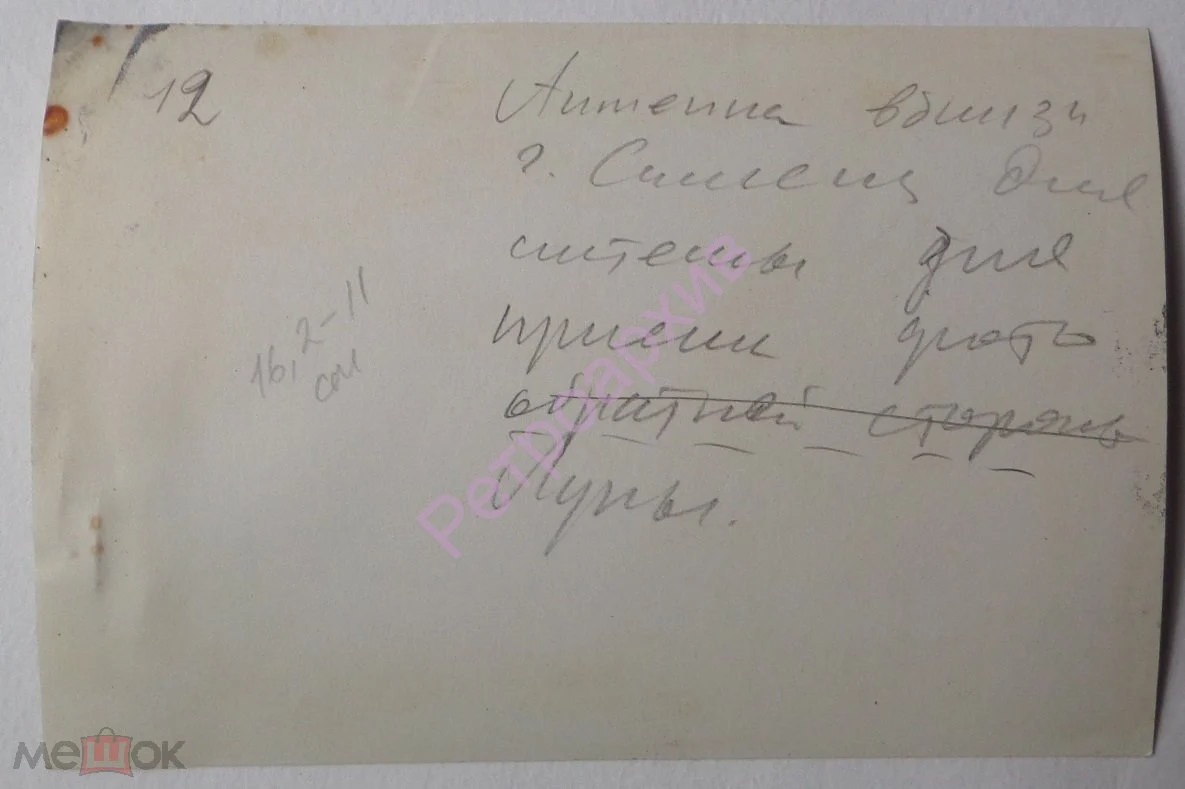 12
Антенна вблизи
г. Симеиц для
системы для
приема фото
обратной стороны
Луны.
16,2-11
см
Ретроархив
мешок